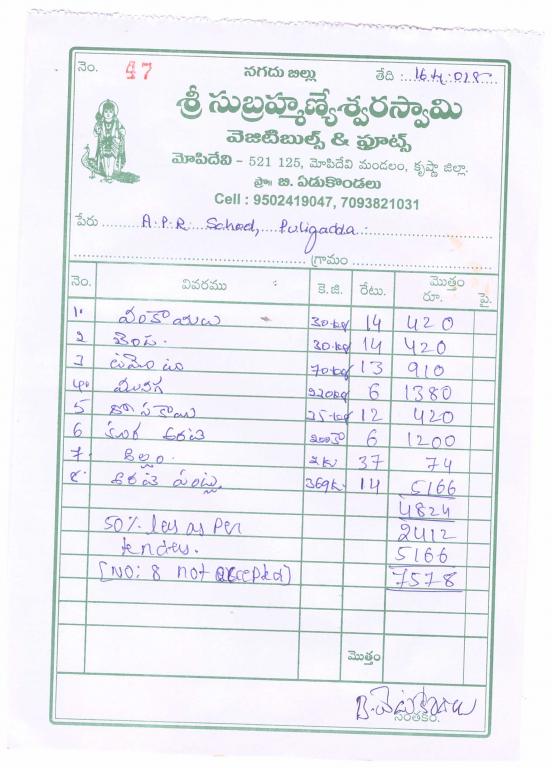 నెం. 47 నగదు బిల్లు తేది :
శ్రీ సుబ్రహ్మణ్యేశ్వరస్వామి
వెజిటిబుల్స్ & ఫ్రూట్స్
మోపిదేవి - 521 125, మోపిదేవి మండలం, కృష్ణా జిల్లా.
ప్రొ॥ బి. ఏడుకొండలు
Cell : 9502419047, 7093821031
పేరు A.P.R. School, Puligadda
గ్రామం
నెం. వివరము కె.జి. రేటు. మొత్తం రూ. పై.
1 వంకాయలు 30.kg 14 420
2 బెండ 30.kg 14 420
3 టమోటా 70kg 13 910
4 మునగ 6 1380
5 దోసకాయ 12 420
6 కూర అరటి 200 6 1200
7 బెల్లం 2k 37 74
8 అరటి పండ్లు 369k 14 5166
4824
50% les as Per 2412
tender. 5166
[NO: 8 not accepted] 7578
మొత్తం
B. ఏడుకొండలు
సంతకం.